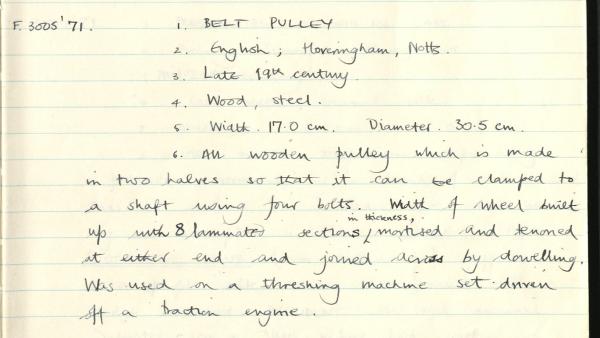 F. 3005'71. 1. BELT PULLEY
2. English; Hoveringham, Notts.
3. Late 19th century.
4. Wood, steel.
5. Width. 17.0 cm. Diameter. 30.5 cm.
6. An wooden pulley which is made
in two halves so that it can be clamped to
a shaft using four bolts. Width of wheel built
up with 8 laminated sections in thickness, mortised and tenoned
at either end and joined across by dowelling.
Was used on a threshing machine set driven
off a traction engine.